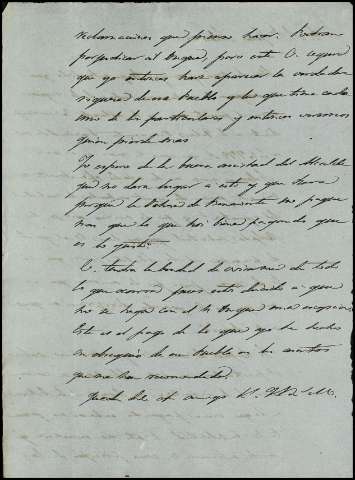 reclamaciones que piensa hacer. Podran
perjudicar al Duque, pero este V. seguro
que yo entonces hare aparecer la verdadera
riqueza de ese pueblo y la que tiene cada
uno de los particulares y entonces veremos
quien pierde mas
Yo espero de la buena amistad del Alcalde
que no dara lugar a esto y que hara
porque la Dehesa de no pague
mas que lo que hoi tiene pagando que
es lo justo.
V. tendra la bondad de avisarme de todo
lo que ocurra pues esto decidido a que
no se haga con el Sr Duque una escepcion.
Este es el pago de lo que yo he hecho
en obsequio de ese pueblo en los asuntos
que me han recomendado.
Queda de V. af. amigo